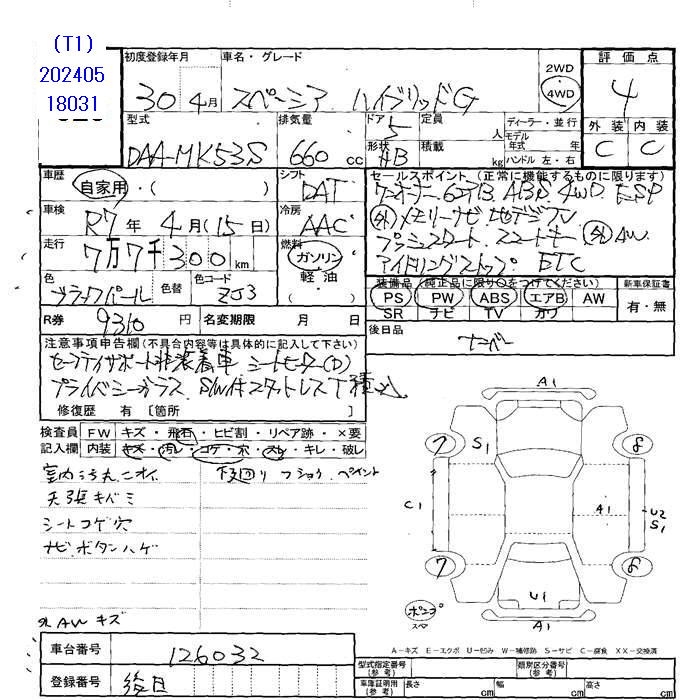 (T1)
202405
18031
初度登録年月 車名・グレード 2WD 4WD 評価点
30 4月 スペーシア ハイブリッドG 4
型式 排気量 ドア 定員 人 ディーラー・並行 外装 内装
DAA-MK53S 660 cc 5 形状 HB 積載 kg モデル年式 年 ハンドル 左・右 C C
車歴 自家用・( ) シフト DAT
セールスポイント (正常に機能するものに限ります)
ワーオーナー 6エアB ABS 4WD ESP
車検 R7年 4月(15日) 冷房 AAC
(外)メモリーナビ 地デジTV
走行 7万7千300km 燃料 ガソリン 軽油 ( )
プッシュスタート スマートキー (外)AW
アイドリングストップ ETC
色 ブラックパール 色替 色コード ZJ3
装備品 (純正品に限り○をつけてください) 新車保証書
PS PW ABS エアB AW 有・無
SR ナビ TV カワ
R券 9310円 名変期限 月 日
後日品 ナンバー
注意事項申告欄(不具合内容等は具体的に記入して下さい)
セーフティサポート非装着車 シートヒーター(D)
プライバシーガラス S/W付スタットレスT積込
修復歴 有 [箇所 ]
検査員記入欄 FW キズ・飛石・ヒビ割・リペア跡・×要
内装 キズ・汚レ・コゲ・穴・スレ・キレ・破レ
室内ヨゴレ ニオイ 下廻り フショク ペイント
天張キバミ
シートコゲ穴
ナビボタンハゲ
外AWキズ
A1
7 S1 8
C1 A1 U2 S1
7 8
U1
ポンプ
スペア
A1
A-キズ E-エクボ U-凹み W-補修跡 S-サビ C-腐食 XX-交換済
車台番号 126032
登録番号 後日
型式指定番号(参考) 類別区分番号(参考)
車庫証明用(参考) 長さ cm 幅 cm 高さ cm